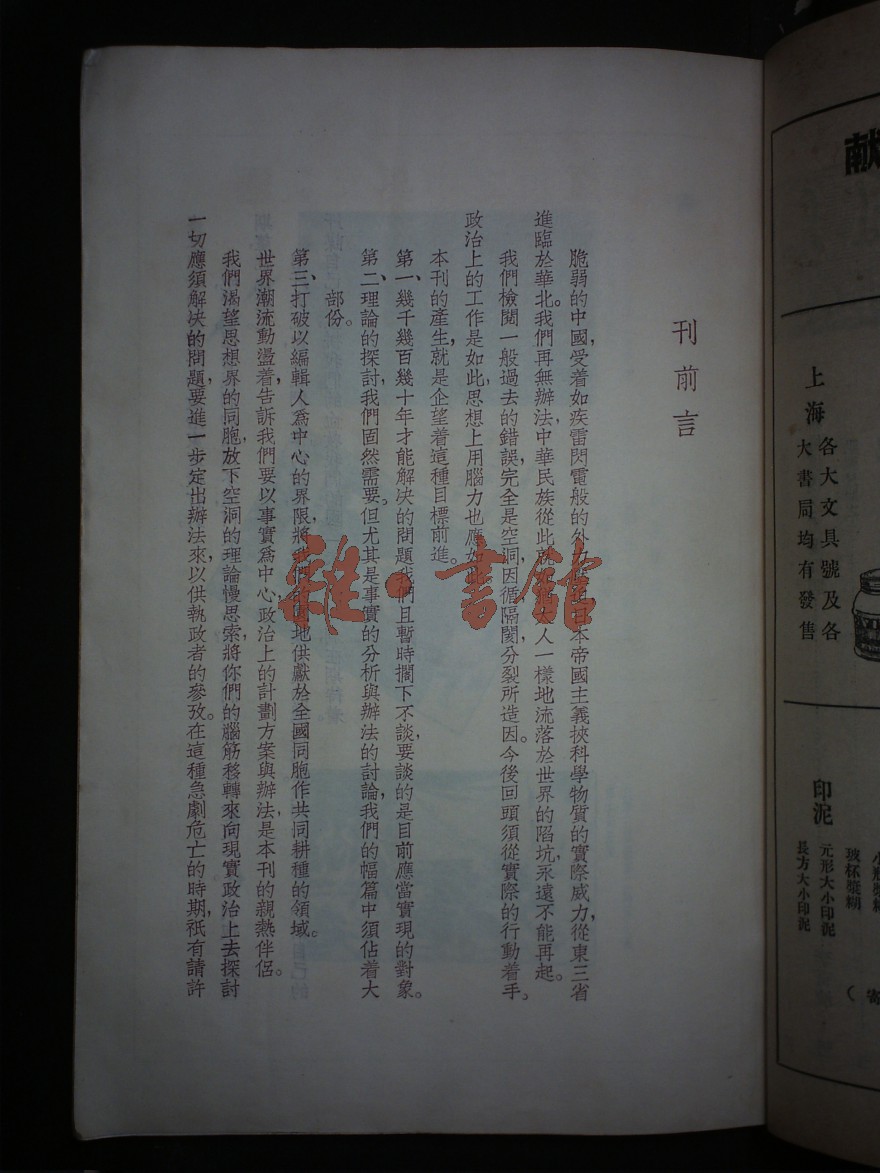 刊前言
脆弱的中國，受着如疾雷閃電般的外
日本帝國主義挾科學物質的實際威力，從東三省
進臨於華北。我們再無辦法，中華民族從此就
人一樣地流落於世界的陷坑，永遠不能再起。
我們檢閱一般過去的錯誤，完全是空洞，因循，隔閡，分裂所造因。今後回頭須從實際的行動着手。
政治上的工作是如此，思想上用腦力也應如此
本刊的產生，就是企望着這種目標前進。
第一、幾千幾百幾十年才能解決的問題，我們且暫時擱下不談，要談的是目前應當實現的對象。
第二、理論的探討，我們固然需要。但尤其是事實的分析與辦法的討論，我們的幅篇中須佔着大
部份。
第三、打破以編輯人爲中心的界限，將我們的
地供獻於全國同胞作共同耕種的領域。
世界潮流動盪着，告訴我們要以事實爲中心，政治上的計劃方案與辦法，是本刊的親熱伴侶。
我們渴望思想界的同胞，放下空洞的理論慢思索，將你們的腦筋移轉來向現實政治上去探討
一切應須解决的問題，要進一步定出辦法來，以供執政者的參攷。在這種急劇危亡的時期，祇有請許
雜·書館
獻
上海各大文具號及各
大書局均有發售
印泥
元形大小印泥
長方大小印泥
玻杯漿糊
寄